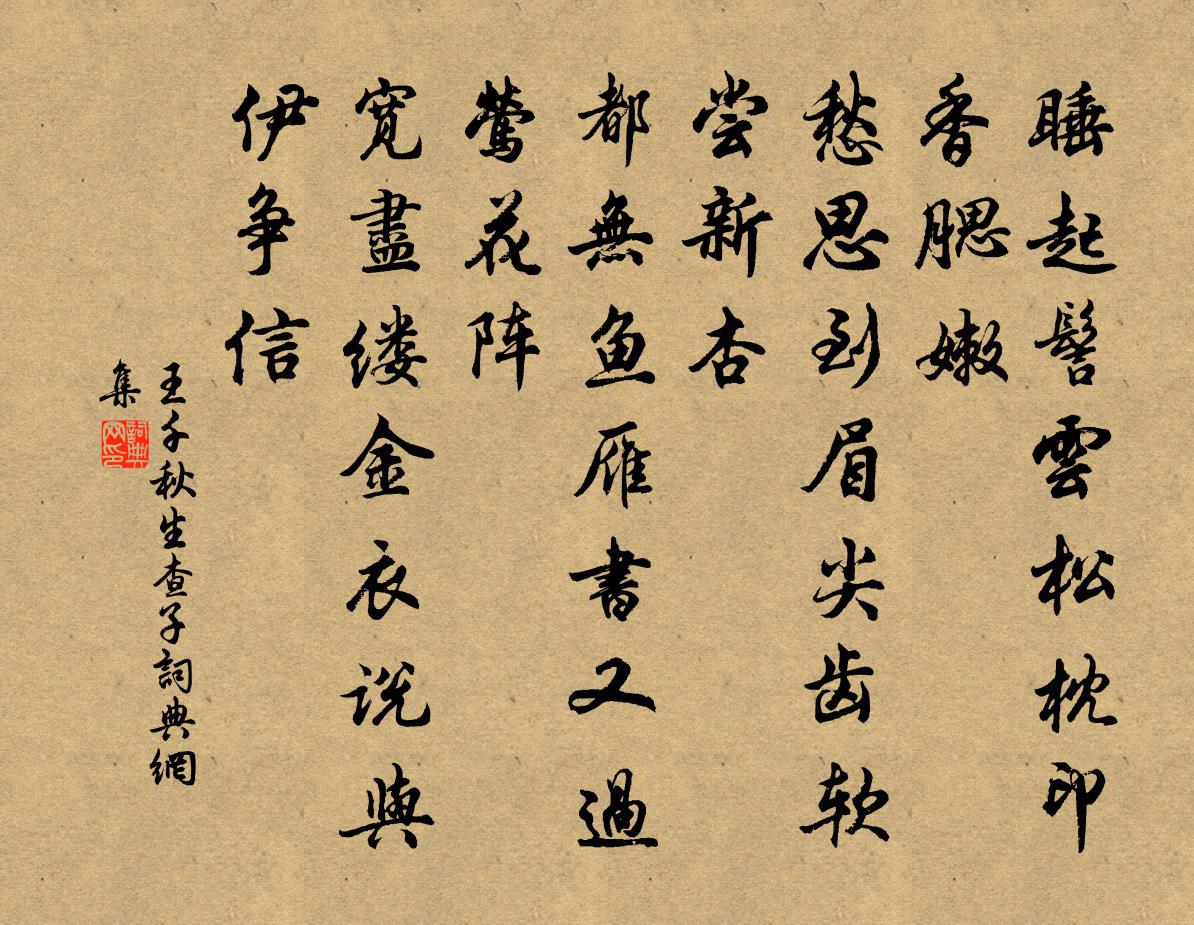 睡起髻雲松枕印
香腮嫩
愁思到眉尖齿软
尝新杏
都無鱼雁書又過
莺花阵
寛盡缕金衣说與
伊争信
王千秋生查子詞典網
集
詞典
网印